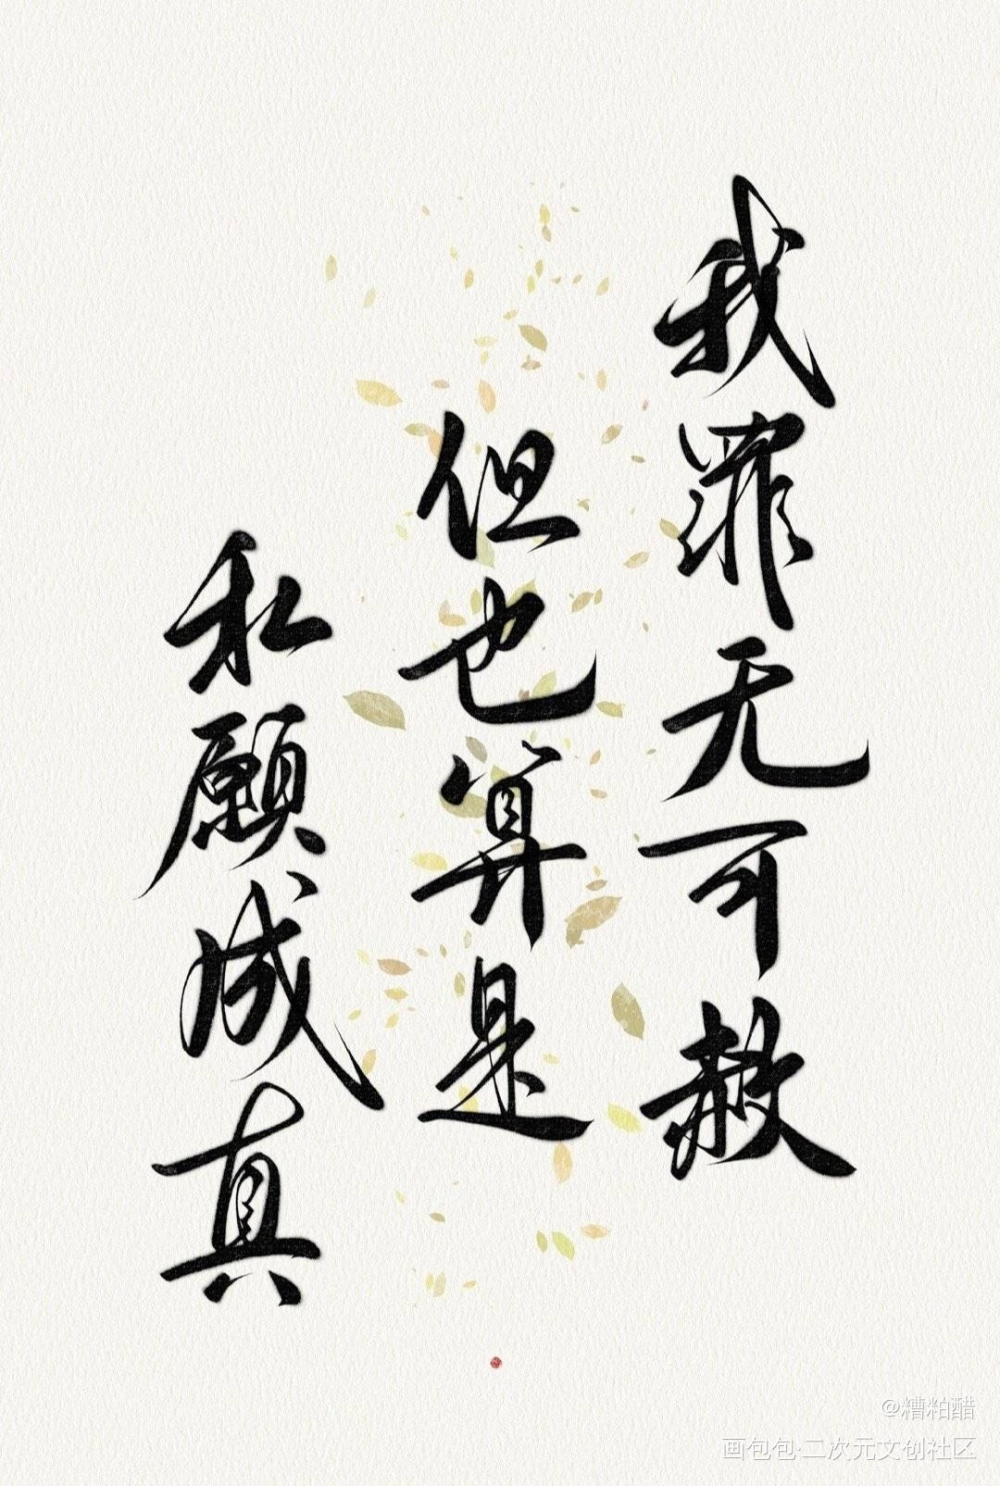 我罪无可赦
但也算是
私愿成真
@糟粕醋
画包包·二次元文创社区